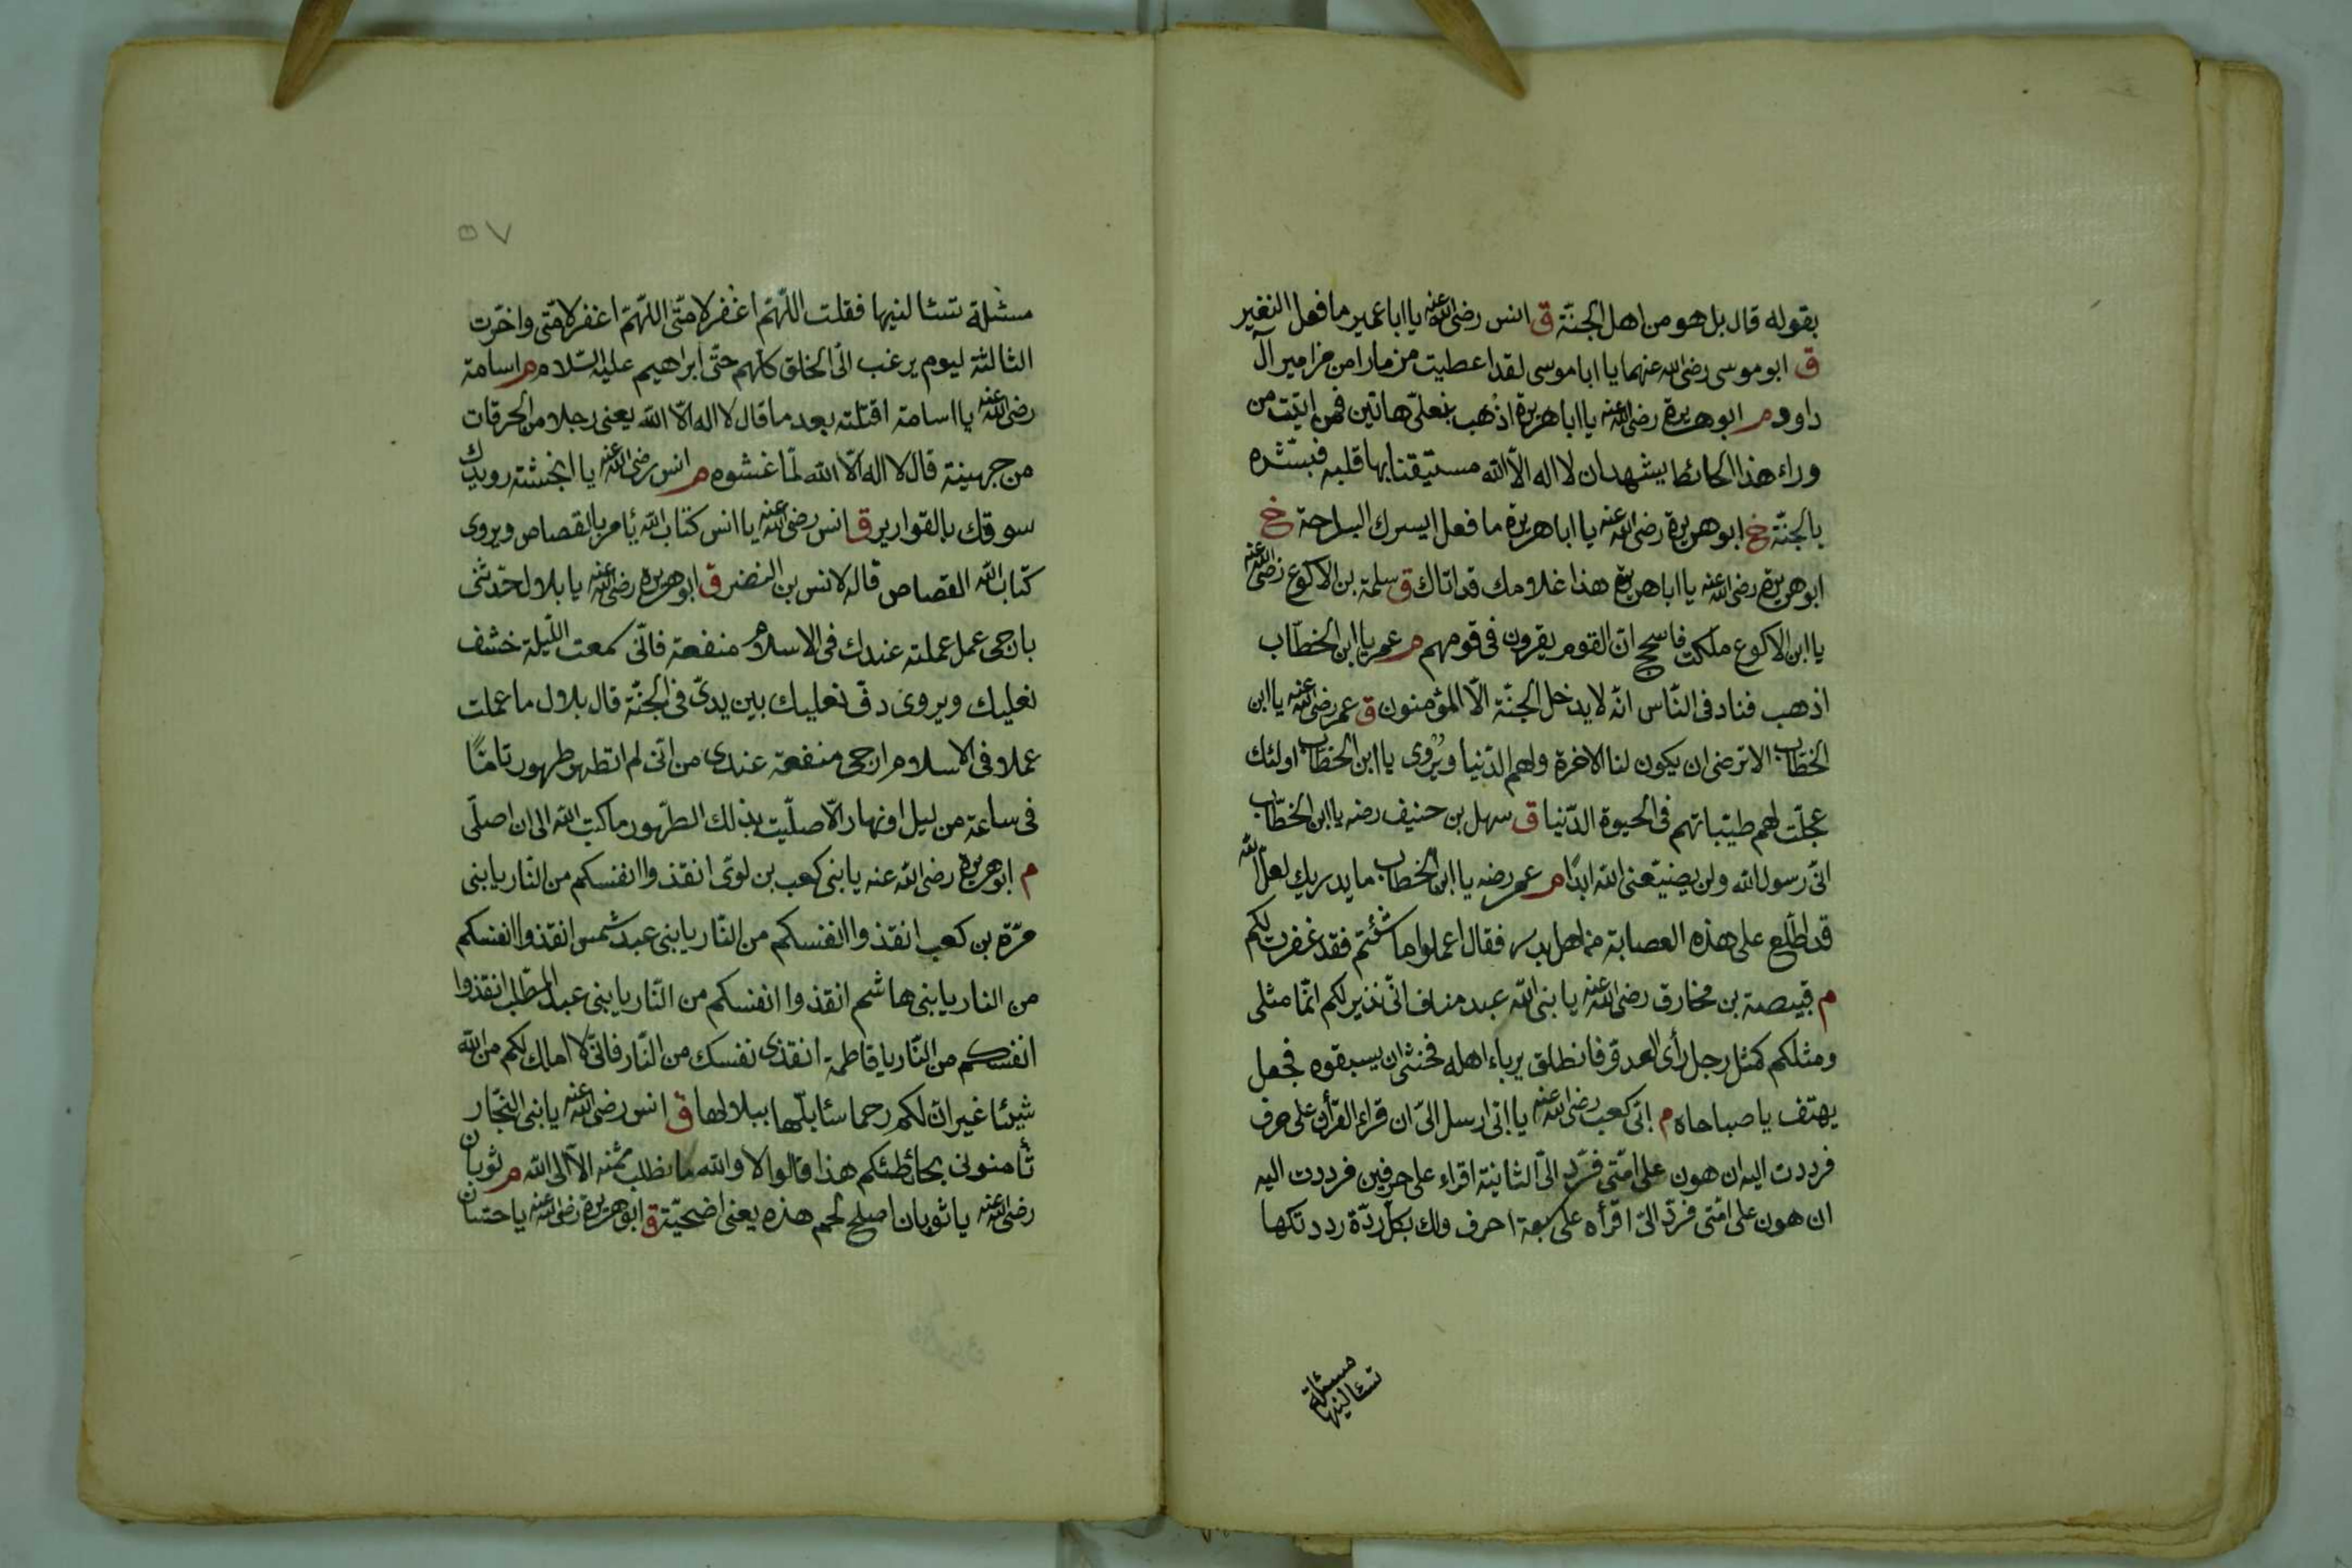 بقوله قال بل هو من اهل الجنّة ق انس رضى الله عنه يا ابا عمير ما فعل النغير
ق ابو موسى رضى الله عنهما يا ابا موسى لقد اعطيت مزمارا من مزامير آل
داود م ابو هريرة رضى الله عنه يا ابا هريرة اذهب بنعلىّ هاتين فمن اتيت من
وراء هذا الحائط يشهد ان لا اله الا الله مستيقنا بها قلبه فبشّره
بالجنّة خ ابو هريرة رضى الله عنه يا ابا هريرة ما فعل ايسرك البارحة خ
ابو هريرة رضى الله عنه يا ابا هريرة هذا غلامك قد اتاك ق سلمة بن الاكوع رضى الله عنه
يا ابن الاكوع ملكت فاسجح انّ القوم يقرون فى قومهم م عمر يا ابن الخطّاب
اذهب فناد فى النّاس انّه لا يدخل الجنّة الّا المؤمنون ق عمر رضى الله عنه يا ابن
الخطّاب الا ترضى ان يكون لنا الاخرة ولهم الدّنيا ويُروى يا ابن الخطّاب اولئك
عجلّت لهم طيّباتهم فى الحيوة الدّنيا ق سهل بن حنيف رضه يا ابن الخطّاب
انّى رسول الله ولن يضيّعنى الله ابدًا م عمر رضه يا ابن الخطّاب ما يدريك لعلّ الله
قد اطّلع على هذه العصابة من اهل بدر فقال اعملوا ما شئتم فقد غفرت لكم
م قبيصة بن مخارق رضى الله عنه يا بنى الله عبد مناف انّى نذير لكم انّما مثلى
ومثلكم كمثل رجل رأى العدوّ فانطلق يرباء اهله فخشى ان يسبقوه فجعل
يهتف يا صباحاه م ابىّ كعب رضى الله عنه يا ابىّ ارسل الىّ ان قراء القرأن على حرف
فرددت اليه ان هون على امّتى فردّ الىّ الثانية اقراء على حرفين فرددت اليه
ان هون على امّتى فردّ الىّ اقرأه على سبعة احرف ولك بكلّ ردّة رددتكها
مسئلة
تسئالنيها
٥٧
مسئلة تسئالنيها فقلت اللّهمّ اغفر لامّتى اللّهمّ اغفر لامّتى واخّرت
الثالثة ليوم يرغب الىّ الخلق كلّهم حتّى ابراهيم عليه السّلام م اسامة
رضى الله عنه يا اسامة اقتلته بعد ما قال لا اله الّا الله يعنى رجلا من الحرقات
من جهينة قال لا اله الّا الله لمّا غشوه م انس رضى الله عنه يا انجشة رويدك
سوقك بالقوارير ق انس رضى الله عنه يا انس كتاب الله يأمر بالقصاص ويروى
كتاب الله القصاص قاله لانس بن النضر ق ابو هريرة رضى الله عنه يا بلال حدّثنى
بارجى عمل عملته عندك فى الاسلام منفعة فانّى سمعت اللّيلة خشف
نعليك ويروى دفّ نعليك بين يدىّ فى الجنّة قال بلال ما عملت
عملا فى الاسلام ارجى منفعة عندى من انّى لم اتطهر طهورا تامّا
فى ساعة من ليل او نهار الّا صلّيت بذلك الطّهور ما كتب الله الى ان اصلّى
م ابو هريرة رضى الله عنه يا بنى كعب بن لوىّ انقذوا انفسكم من النّار يا بنى
مرّة بن كعب انقذوا انفسكم من النّار يا بنى عبد شمس انقذوا انفسكم
من النار يا بنى هاشم انقذوا انفسكم من النّار يا بنى عبد المطّلب انقذوا
انفسكم من النّار يا فاطمة انقذى نفسك من النّار فانّى لا املك لكم من الله
شيئا غير انّ لكم رحما سئابلّها ببلالها ق انس رضى الله عنه يا بنى النجّار
ثأمنونى بحائطكم هذا قالوا لا والله ما نطلب ثمنه الّا الى الله م ثوبان
رضى الله عنه يا ثوبان اصلح لحم هذه يعنى اضحيّة ق ابو هريرة رضى الله عنه يا حسّان